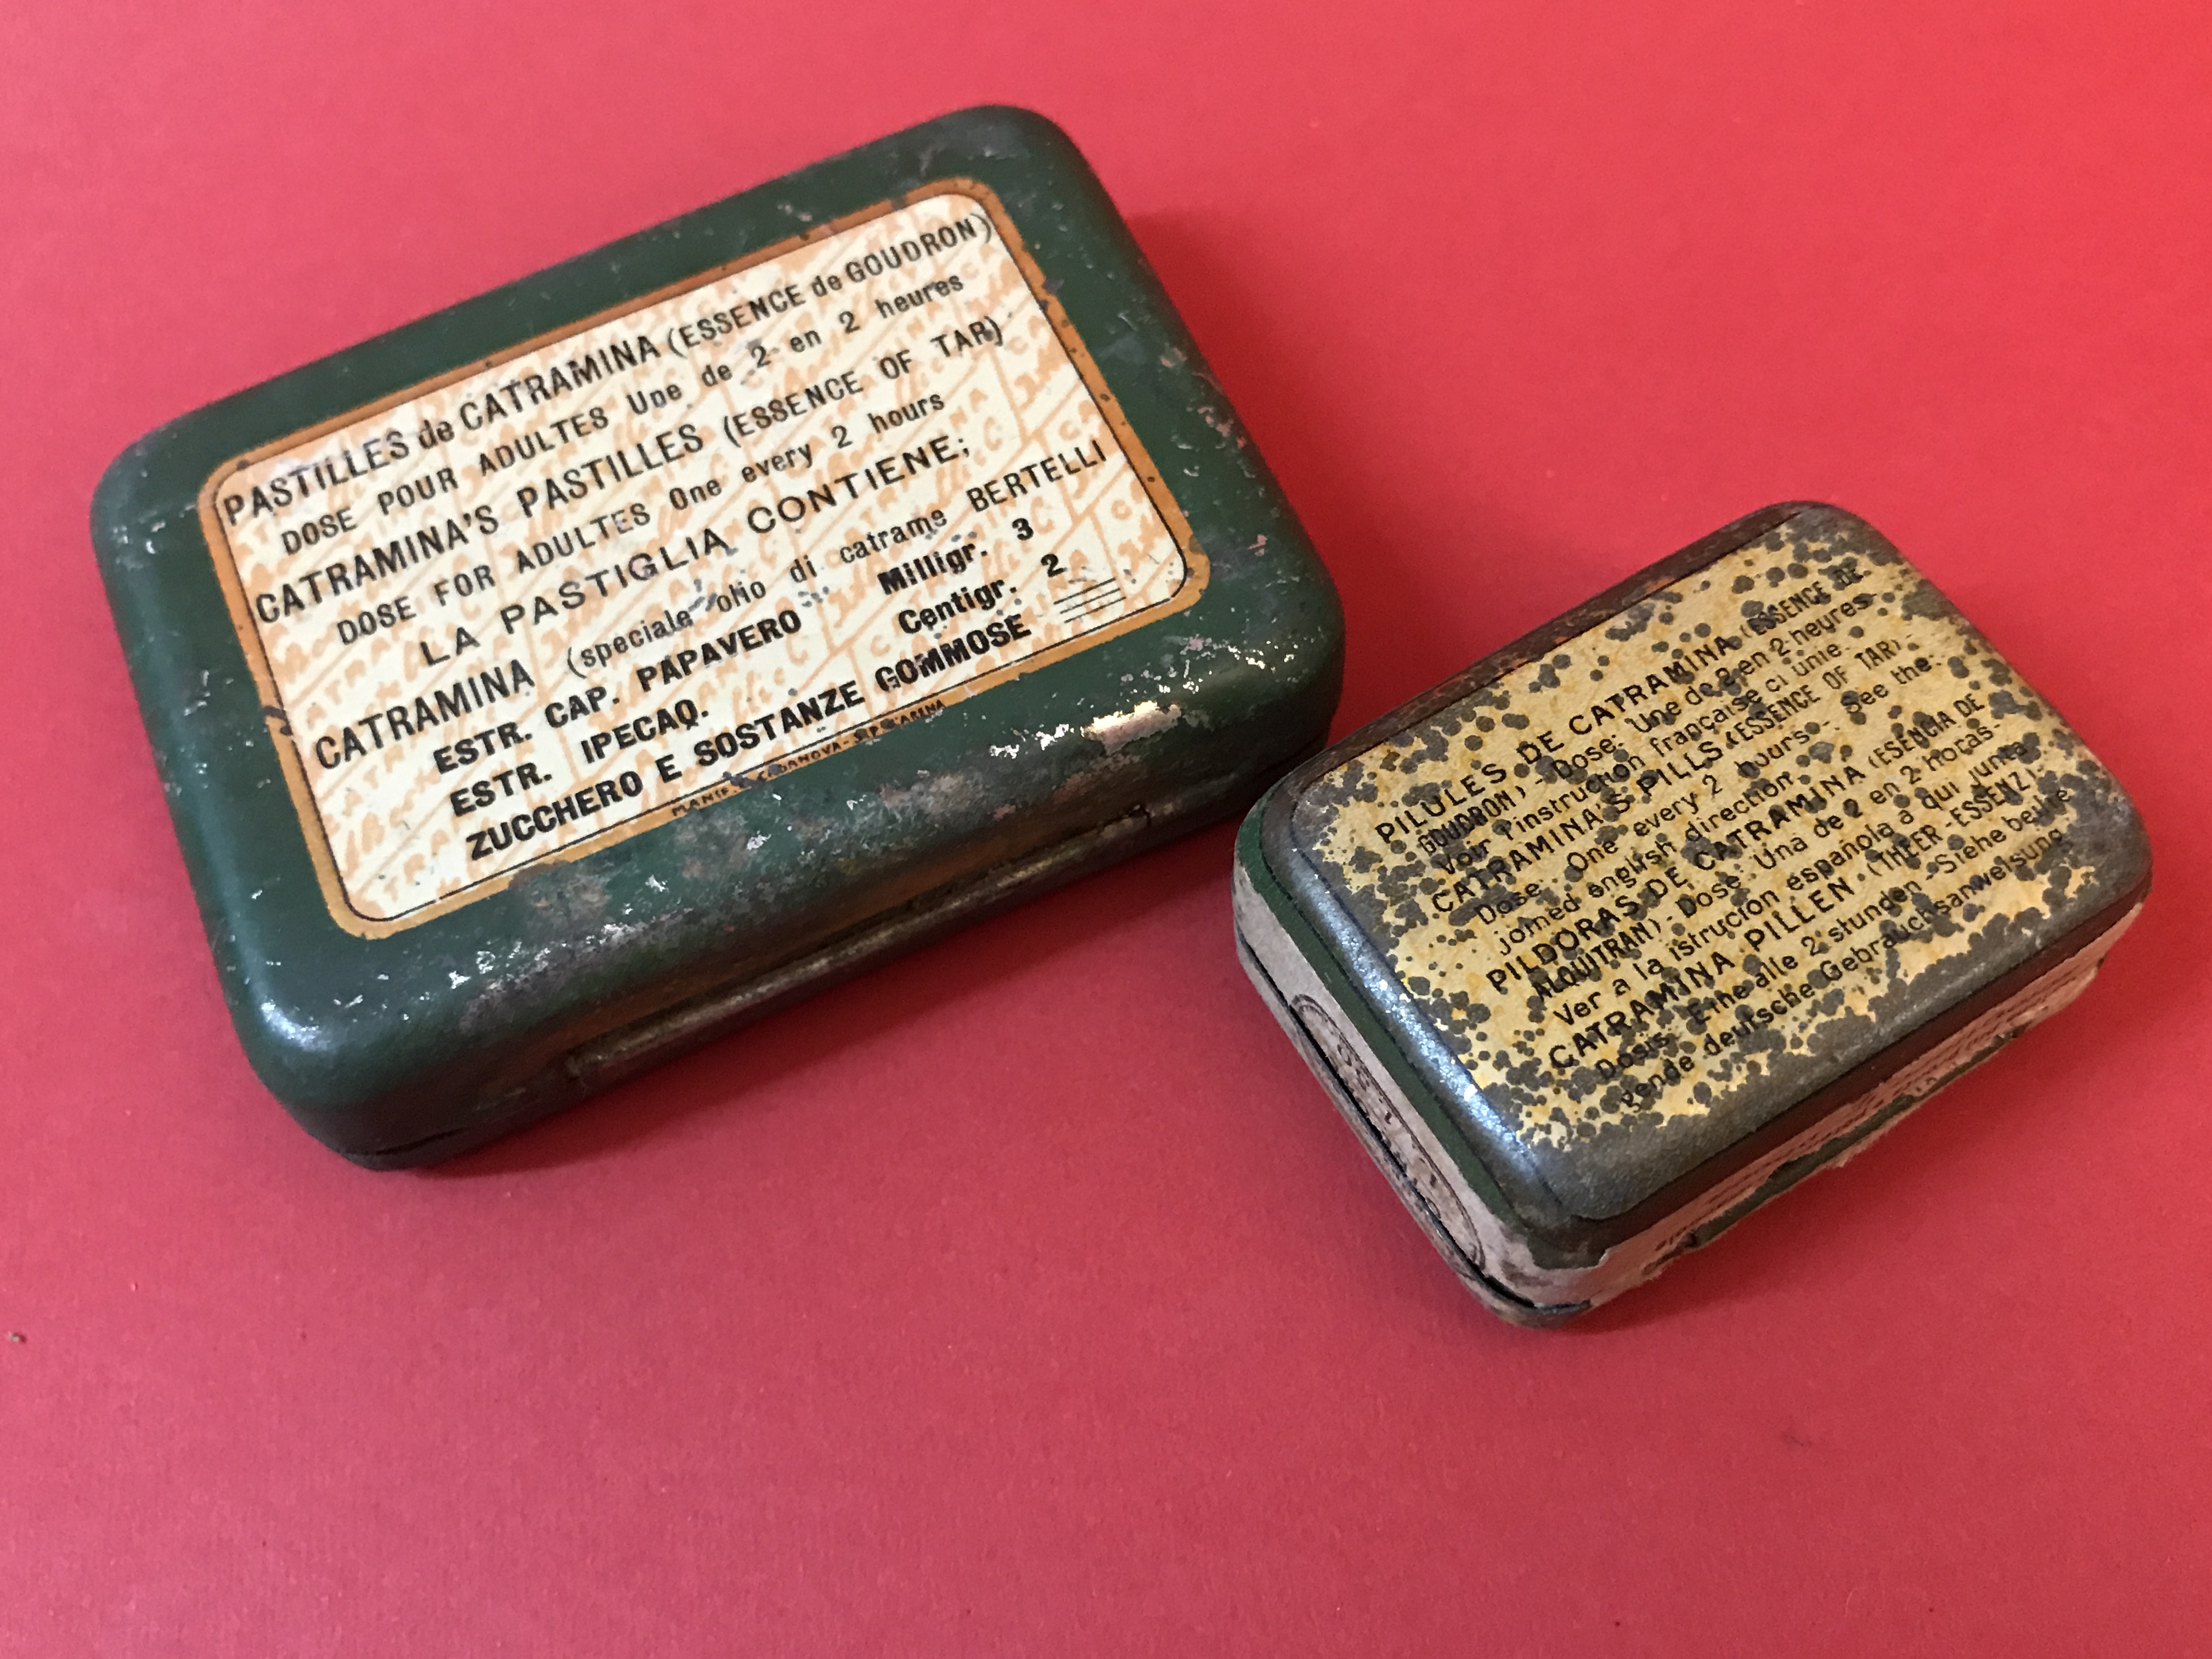 PASTILLES de CATRAMINA (ESSENCE de GOUDRON)
DOSE POUR ADULTES Une de 2 en 2 heures
CATRAMINA'S PASTILLES (ESSENCE OF TAR)
DOSE FOR ADULTES One every 2 hours
LA PASTIGLIA CONTIENE;
CATRAMINA (speciale olio di catrame BERTELLI
ESTR. CAP. PAPAVERO Milligr. 3
ESTR. IPECAQ. Centigr. 2
ZUCCHERO E SOSTANZE GOMMOSE
ARENA
PILULES DE CATRAMINA (ESSENCE DE
GOUDRON) - Dose: Une de 2 en 2 heures
Voir l'instruction française ci unie.
CATRAMINA'S PILLS (ESSENCE OF TAR)
Dose: One every 2 hours - See the
joined english direction.
PILDORAS DE CATRAMINA (ESENCIA DE
ALQUITRAN) - Dose: Una de 2 en 2 horas -
Ver a la istrucion española a qui junta
CATRAMINA PILLEN (THEER-ESSENZ)
Dosis: Eine alle 2 stunden - Siehe beilie
gende deutsche Gebrauchsanweisung